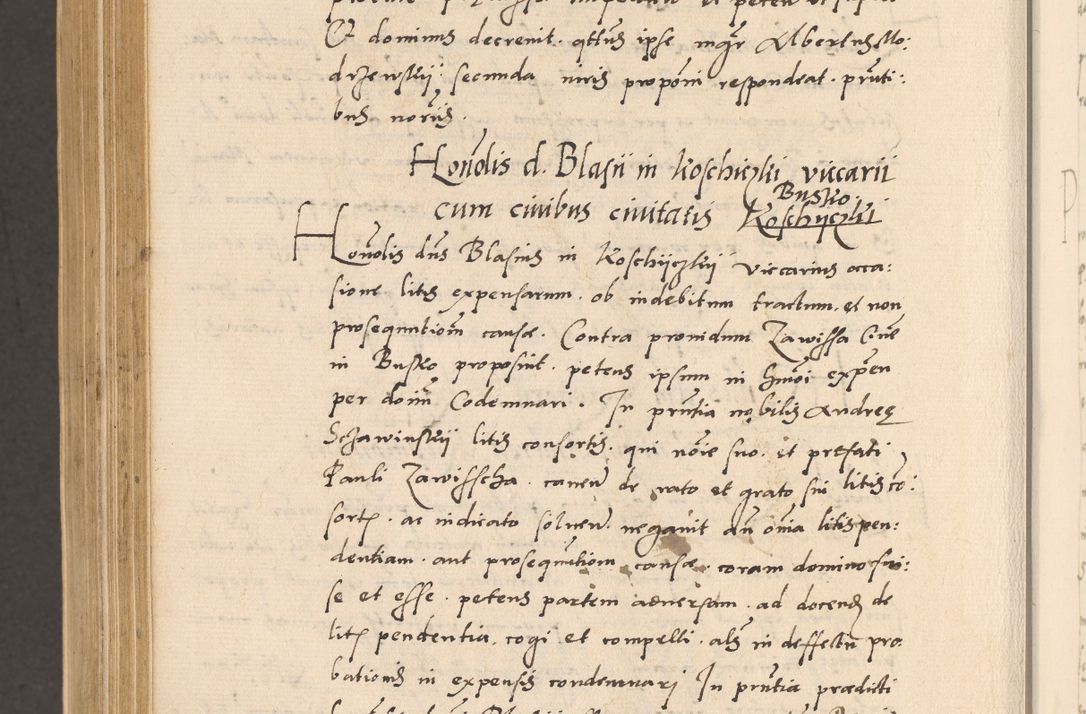 Et dominus decrevit. qtt̃us ipse mgr̃ Albertus Mo:
drzewskij secunda iuris propoñi respondeat. pñti:
bus noriis.
Honõlis d. Blasii in Koschiczki viccarii
cum civibus civitatis Busko Koschyczki
Honõlis dñs Blasius in Koschijczkij viccarius occa:
sione litis expensarum. ob indebitum tractum. et non
prosequutioñ causæ. Contra providum Zawissa Cive
in Busko proposuit. petens ipsum in hmõi expeñ
per doim̃ Codemnari. In pñtia nobilis Andreę
Sczawinskij litis consortis. qui nõie suo. et prefati
Pauli Zawisscha. caveñ de rato et grato sui litis cõ:
sort. ac iudicato solveñ. negavit añ oĩa litispen:
dentiam. aut prosequutioñ causæ coram domino fuis:
se et esse. petens partem adversam. ad docend de
lit pendentia. cogi et compelli. als in deffectu pro
bationis in expensis condemnari In pñtia prædicti